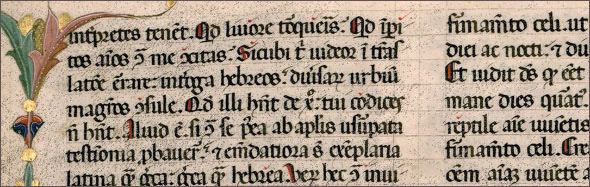 int̃pretes tenẽt. Qd liuore tõqueris. Qd ĩpi
tos aĩos ɔ̃ me ↄcitas. Sicubi t̃ uideor ĩ trãs
latõe ẽrare: int̃roga hebreos: diũsaꝝ urbiũ
magr̃os ↄ̃sule. Qd illi hñt de xp̃o: tui codices
ñ hñt. Aliud ẽ. si ɔ̃ se p̃ea ab ap̃lis usurpata
testimonia ꝓbauer̃: ⁊ em̃datiora s̃ exẽplaria
latina qͣ̃ grẽca: grẽca qͣ̃ hebrea. Veꝝ hec ɔ̃ inui
firmam̃to celi. ut
diei ac nocti: ⁊ du
Et uidit dẽs qͥ ẽet
mane dies quart᷒.
reptile aĩe uiuẽtis
firmam̃to celi. Cre
cẽm aĩaꝫ uiuẽtẽ a